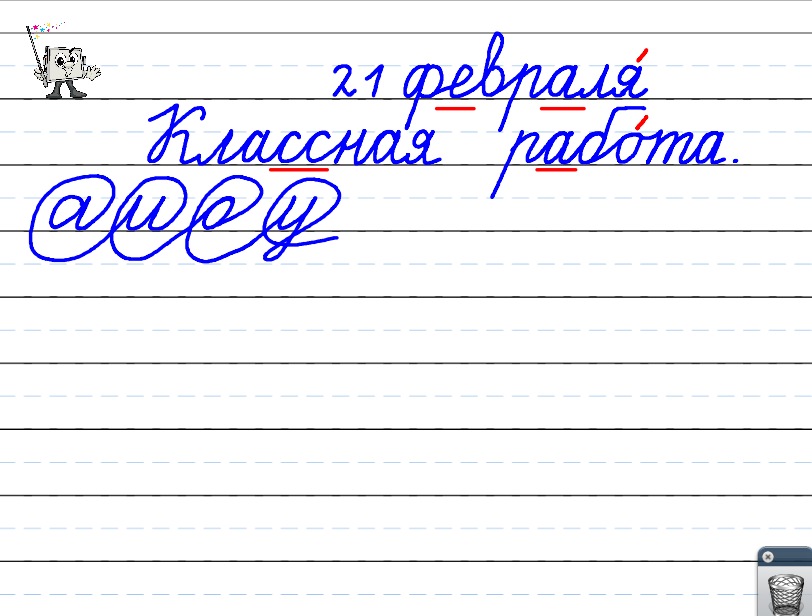 21 февраля́
Классная рабо́та.
а и о у